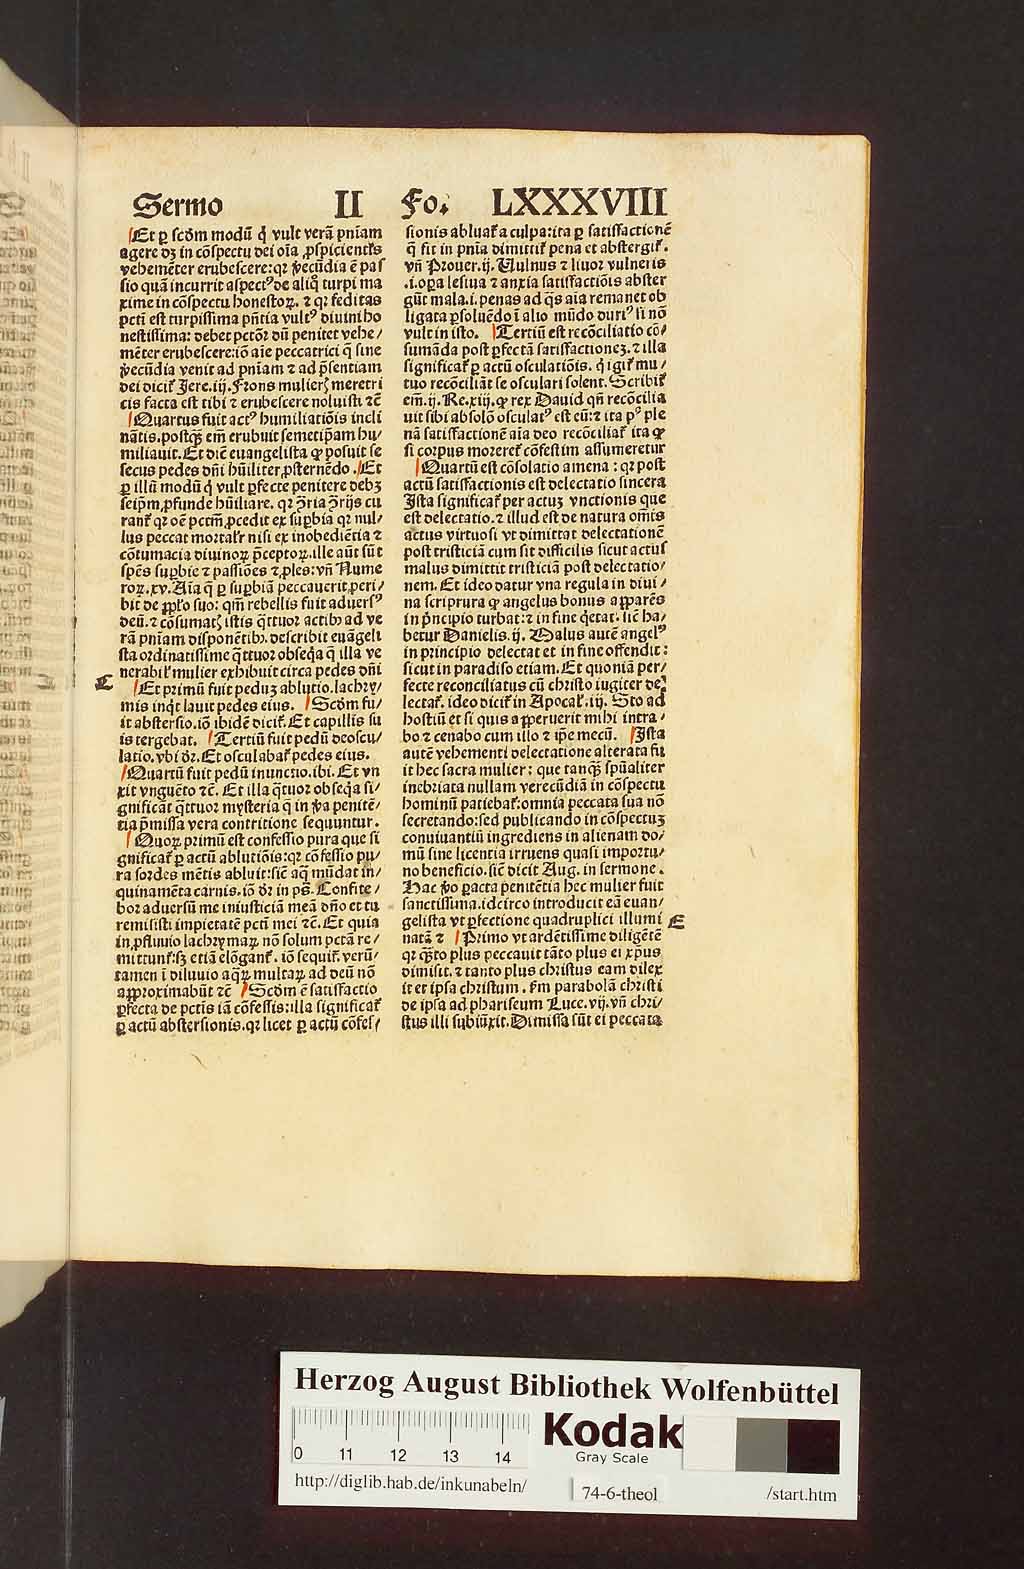 Sermo II Fo. LXXXVIII
Et ꝑ scďm modū q̇ vult verā pn̄iam
agere dꝫ in cōspectu dei oīa ꝓspicient̄s
vehemēter erubescere: qꝛ v̄ecūdia ē pas
sio quā incurrit aspectꝰ de aliq̊ turpi ma
xime in cōspectu honestoꝝ. ⁊ qꝛ feditas
pctī est turpissima pn̄tia vultꝰ diuini ho
nestissima: debet pctōꝛ dū penitet vehe/
mēter erubescere: iō aīe peccatrici q̄ sine
v̄ecūdia venit ad pn̄iam ⁊ ad p̄sentiam
dei dicit̄ Jere. iij. Frons mulierꝭ meretri
cis facta est tibi ⁊ erubescere noluisti ⁊c̄
Quartus fuit actꝰ humiliatiōis incli
nātis. postqꝫ em̄ erubuit semetip̄am hu/
miliauit. Et dic̄ euangelista ꝙ posuit se
secus pedes dn̄i hūiliter ꝓsternēdo. Et
ꝑ illū modū q̇ vult ꝑfecte penitere debꝫ
seip̄m ꝓfunde hūiliare. qꝛ ꝯ̄ria ꝯ̄rijs cu
rant̄ qꝛ oē pctm̄ ꝓcedit ex suꝑbia qꝛ nul/
lus peccat mortalr̄ nisi ex inobediētia ⁊
cōtumacia diuinoꝝ p̄ceptoꝝ. ille aūt sūt
spēs suꝑbie ⁊ passiōes ⁊ ꝓles: vn̄ Nume
roꝝ. xv. Aīa q̄ ꝑ suꝑbiā peccauerit ꝑeri/
bit de pp̄lo suo: qm̄ rebellis fuit aduersꝰ
deū. ⁊ cōsumatꝭ istis q̄ttuor actibꝫ ad ve
rā pn̄iam disponētibꝫ. describit euāgeli
sta ordinatissime q̄ttuor obseq̄a q̄ illa ve
nerabil̄ mulier exhibuit circa pedes dn̄i
C Et primū fuit peduꝫ ablutio. lachry/
mis inq̇t lauit pedes eius. Scďm fu/
it abstersio. iō ibidē dicit̄. Et capillis su
is tergebat. Tertiū fuit pedū deoscu/
latio. vbi dr̄. Et osculabat̄ pedes eius.
Quartū fuit pedū inunctio. ibi. Et vn
xit vnguēto ⁊c̄. Et illa q̄ttuor obseq̄a si/
gnificāt q̄ttuor mysteria q̄ in v̄a penitē/
tia p̄missa vera contritione sequuntur.
Quoꝝ primū est confessio pura que si
gnificat̄ ꝑ actū ablutiōis: qꝛ cōfessio pu/
ra sordes mētis abluit: sic̄ aq̄ mūdat in/
quinamēta carnis. iō dr̄ in ps̄. Confite/
bor aduersū me iniusticiā meā dn̄o et tu
remisisti impietatē pctī mei ⁊c̄. Et quia
in ꝓfluuio lachrymaꝝ nō solum pctā re/
mittunt̄: sꝫ etiā elōgant̄. iō sequit̄. verū/
tamen ī diluuio aq̄ꝝ multaꝝ ad deū nō
approximabūt ⁊c̄ Scďm ē satisfactio
ꝑfecta de pctīs iā cōfessis: illa significat̄
ꝑ actū abstersionis. qꝛ licet ꝑ actū cōfes/
sionis abluat̄ a culpa: ita ꝑ satisfactionē
q̄ fit in pn̄ia dimittit̄ pena et abstergit̄.
vn̄ Prouer. ij. Vulnus ⁊ liuor vulneris
.i. oꝑa lesiua ⁊ anxia satisfactiōis abster
gūt mala. i. penas ad q̄s aīa remanet ob
ligata ꝑsoluēdo ī alio mūdo duriꝰ si nō
vult in isto. Tertiū est recōciliatio cō/
sumāda post ꝑfectā satisfactioneꝫ. ⁊ illa
significat̄ ꝑ actū osculatiōis. q̇ igit̄ mu/
tuo recōciliāt se osculari solent. Scribit̄
em̄. ij. Re. xiij. ꝙ rex Dauid qn̄ recōcilia
uit sibi absolō osculatꝰ est eū: ⁊ ita pꝰ ple
nā satisfactionē aīa deo recōciliat̄ ita ꝙ
si corpus moreret̄ cōfestim assumeretur
Quartū est cōsolatio amena: qꝛ post
actū satisfactionis est delectatio sincera
Ista significat̄ per actuꝫ vnctionis que
est delectatio. ⁊ illud est de natura om̄is
actus virtuosi vt dimittat delectationē
post tristiciā cum sit difficilis sicut actus
malus dimittit tristiciā post delectatio/
nem. Et ideo datur vna regula in diui/
na scriprura ꝙ angelus bonus apparēs
in p̄ncipio turbat: ⁊ in fine q̇etat. sic̄ ha/
betur Danielis. ij. Malus autē angelꝰ
in principio delectat et in fine offendit:
sicut in paradiso etiam. Et quoniā per/
fecte reconciliatus cū christo iugiter de/
lectat̄. ideo dicit̄ in Apocal̄. iij. Sto ad
hostiū et si quis apperuerit mihi intra/
bo ⁊ cenabo cum illo ⁊ ip̄e mecū. Ista
autē vehementi delectatione alterata fu
it hec sacra mulier: que tanqꝫ spūaliter
inebriata nullam verecūdiā in cōspectu
hominū patiebat̄: omnia peccata sua nō
secretando: sed publicando in cōspectuꝫ
conuiuantiū ingrediens in alienam do/
mū sine licentia irruens quasi importu/
no beneficio. sic̄ dicit Aug. in sermone.
Hac v̄o ꝑacta penitētia hec mulier fuit
sanctissima. idcirco introducit eā euan/
gelista vt ꝑfectione quadruplici illumi E
natā ⁊ Primo vt ardētissime diligētē
qꝛ qꝫto plus peccauit tāto plus ei xp̄us
dimisit. ⁊ tanto plus christus eam dilex
it et ipsa christum. ẜm parabolā christi
de ipsa ad phariseum Luce. vij. vn̄ chri/
stus illi subiūxit. Dimissa sūt ei peccata
Herzog August Bibliothek Wolfenbüttel
0 11 12 13 14
Kodak
Gray Scale
http://diglib.hab.de/inkunabeln/ 74-6-theol /start.htm